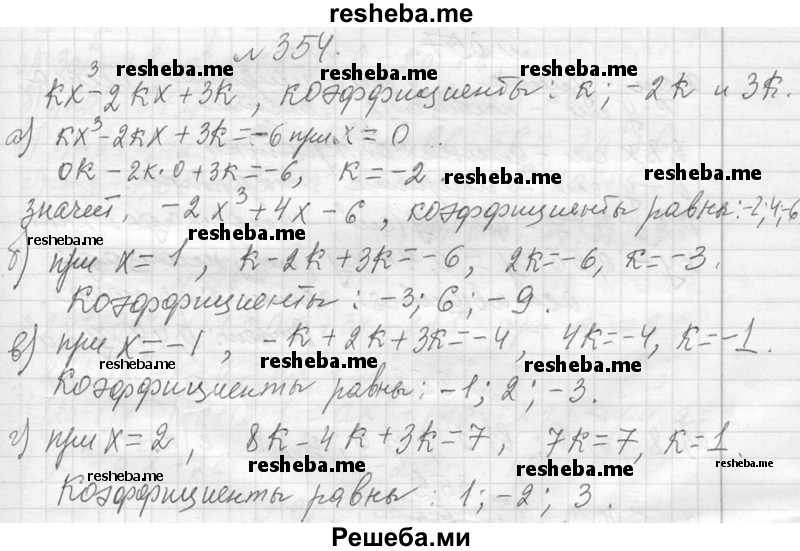 resheba.me
№ 354.
resheba.me resheba.me resheba.me
kx³-2kx+3k, коэффициенты: k; -2k и 3k.
а) kx³-2kx+3k=-6 при x=0
0k-2k·0+3k=-6, k=-2.
resheba.me resheba.me
значит, -2x³+4x-6, коэффициенты равны: -2; 4; -6
resheba.me resheba.me
б) при x=1, k-2k+3k=-6, 2k=-6, k=-3.
Коэффициенты: -3; 6; -9.
в) при x=-1, -k+2k+3k=-4, 4k=-4, k=-1.
resheba.me resheba.me resheba.me
Коэффициенты равны: -1; 2; -3.
г) при x=2, 8k-4k+3k=7, 7k=7, k=1.
resheba.me resheba.me resheba.me resheba.me
Коэффициенты равны: 1; -2; 3.
Решеба.ми